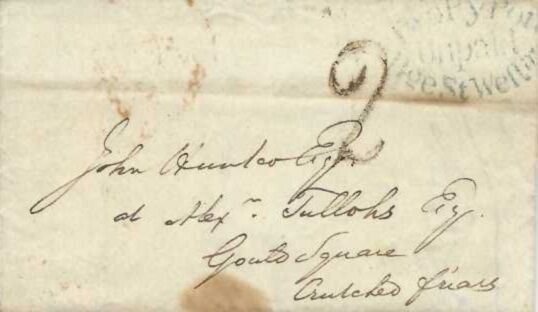 Py Post
Unpaid
2
John Hunter Esqr
at Alexr. Tullohs Esq.
Gould Square
Crutched friars